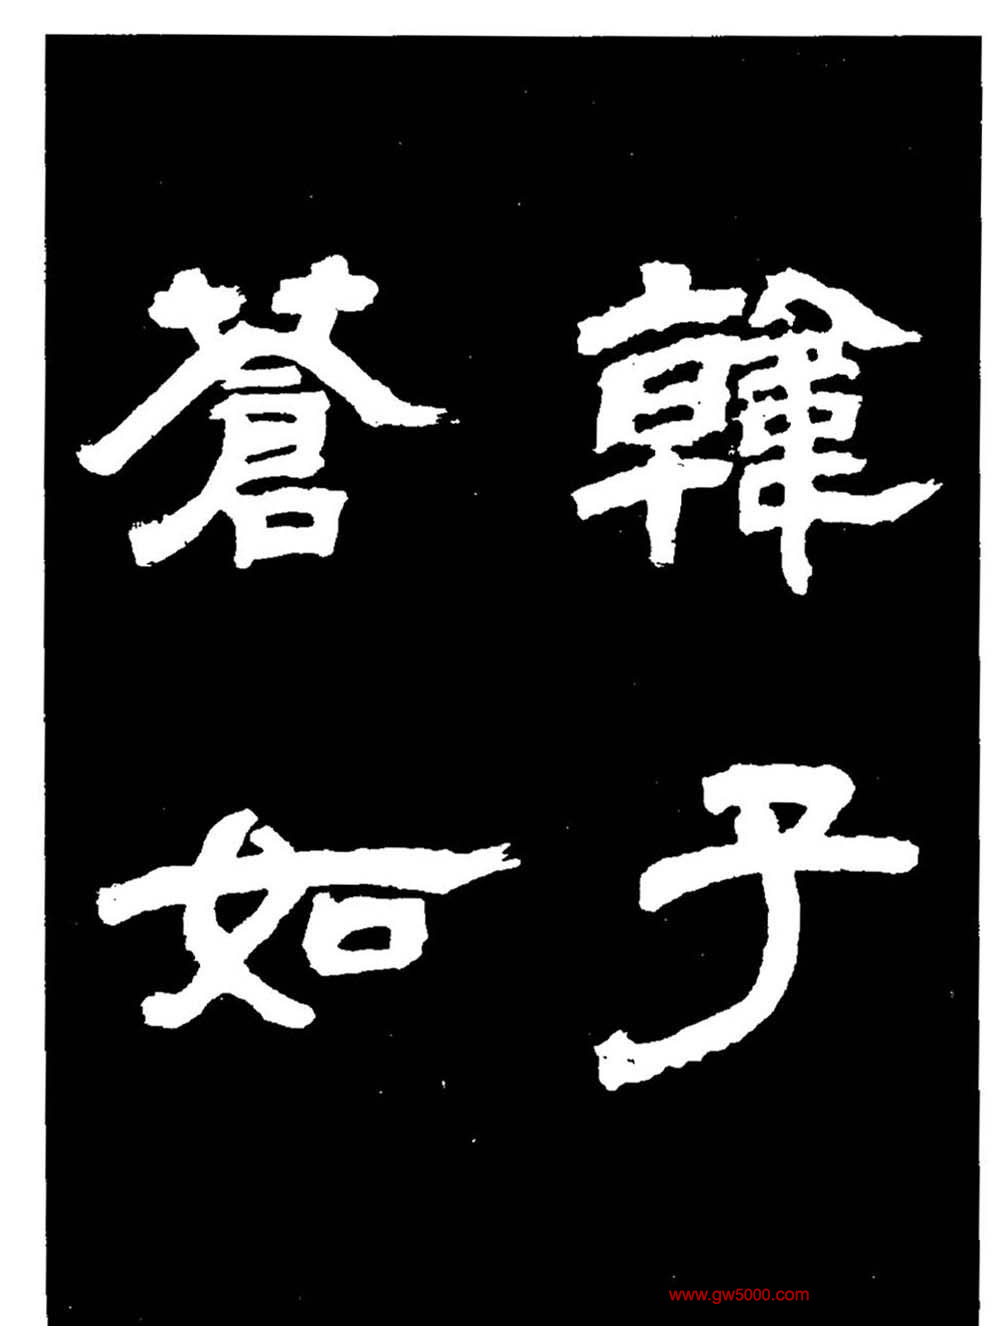 韓子
蒼如
www.gw5000.com